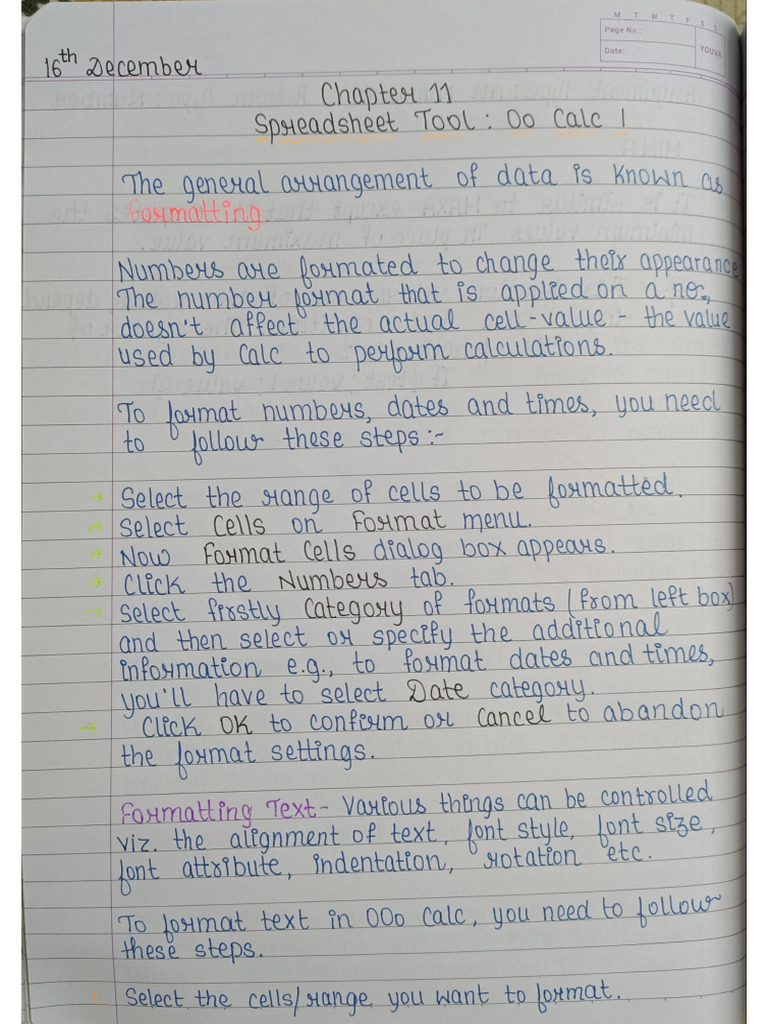 M T W T F S S
Page No.:
Date:
YOUVA
16th December
Chapter 11
Spreadsheet Tool : Oo Calc 1
The general arrangement of data is known as
formatting.
Numbers are formated to change their appearance
The number format that is applied on a no.,
doesn't affect the actual cell-value - the value
used by Calc to perform calculations.
To format numbers, dates and times, you need
to follow these steps :-
→ Select the range of cells to be formatted.
→ Select Cells on Format menu.
→ Now Format Cells dialog box appears.
→ Click the Numbers tab.
→ Select firstly Category of formats (from left box)
and then select or specify the additional
information e.g., to format dates and times,
you'll have to select Date category.
→ Click OK to confirm or Cancel to abandon
the format settings.
Formatting Text - Various things can be controlled
viz. the alignment of text, font style, font size,
font attribute, indentation, rotation etc.
To format text in OOo Calc, you need to follow
these steps.
Select the cells/range you want to format.